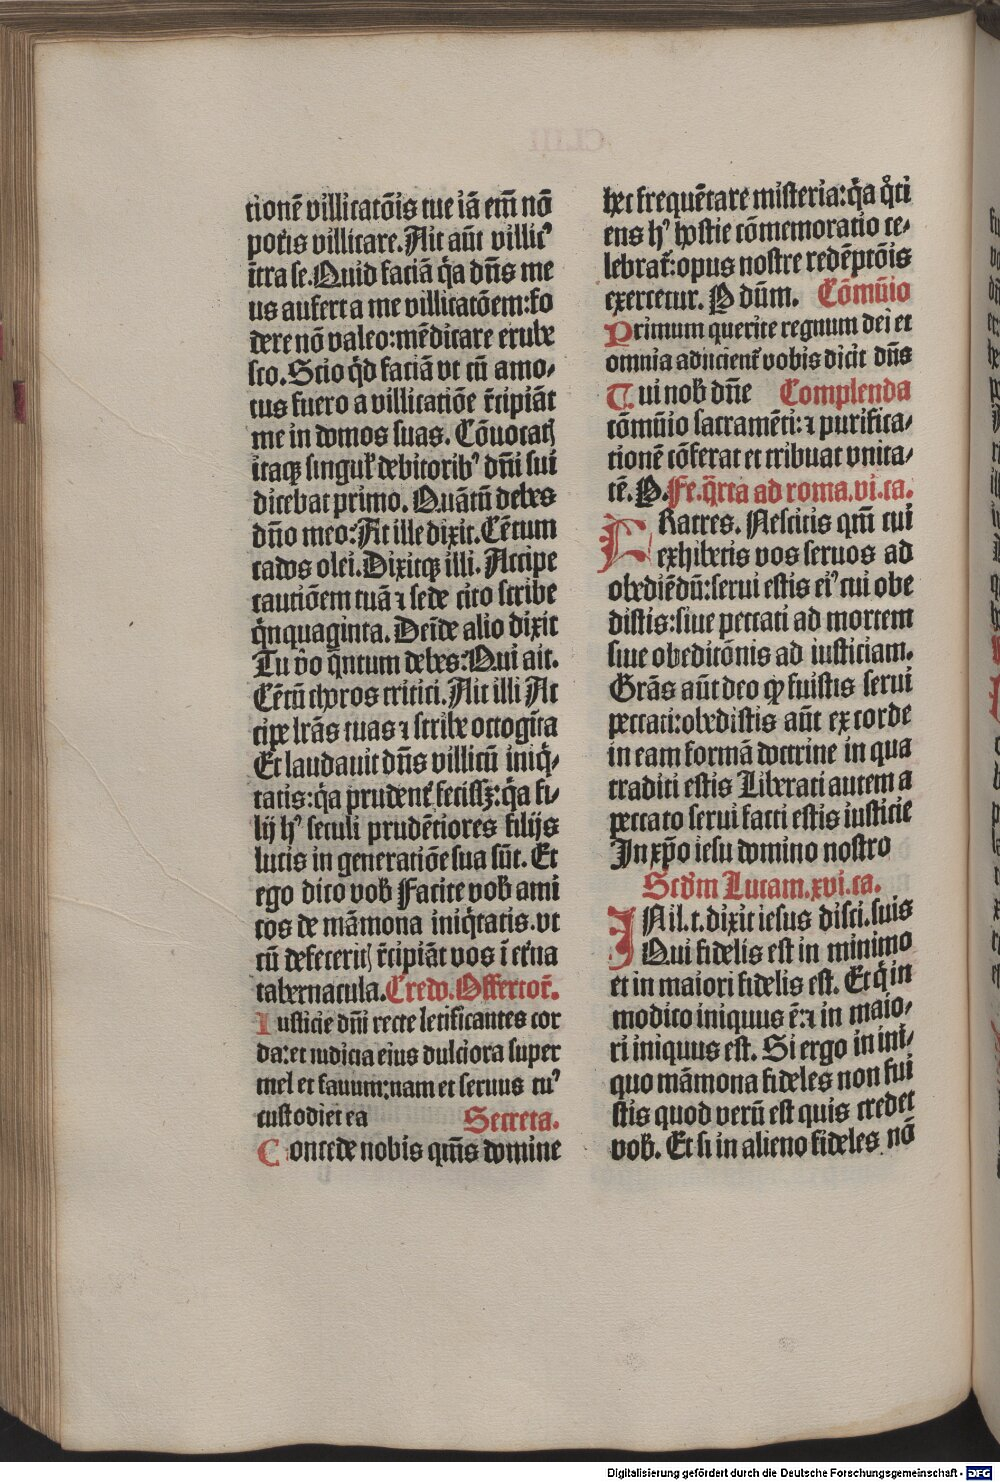 tionē villicatōis tue iā em̄ nō
poteris villicare. Ait aūt villicꝰ
ītra se. Quid faciā qͣa dn̄s me
us aufert a me villicatōem: fo
dere nō valeo: mēdicare erube
sco. Scio qͥd faciā vt cū amo⸗
tus fuero a villicatiōe r̄cipiāt
me in domos suas. Cōuocatꝭ
itaqꝫ singuł debitoribꝰ dn̄i sui
dicebat primo. Quātū debes
dn̄o meo: At ille dixit. Cētum
cados olei. Dixitqꝫ illi. Accipe
cautiōem tuā ⁊ sede cito scribe
qͥnquaginta. Deīde alio dixit
Tu v̊o qͣntum debes: Qui ait.
Cētū choros tritici. Ait illi Ac
cipe lr̄as tuas ⁊ scribe octogīta
Et laudauit dn̄s villicū iniqͥ⸗
tatis: qͣa prudent̄ fecissꝫ: qͣa fi⸗
lij hꝰ seculi prudētiores filijs
lucis in generatiōe sua sūt. Et
ego dico vob̄ Facite vob̄ ami
cos de māmona iniqͥtatis. vt
cū defeceritꝭ r̄cipiāt vos ī et̄na
tabernacula. Credo. Offertor̄.
Iusticie dn̄i recte letificantes cor
da: et iudicia eius dulciora super
mel et fauum: nam et seruus tuꝰ
custodiet ea Secreta.
Concede nobis qm̄s domine
hec frequētare misteria: qͣa qͦti
ens hꝰ hostie cōmemoratio ce⸗
lebrat̄: opus nostre redēptōis
exercetur. P dūm. Cōmūio
Primum querite regnum dei et
omnia adiicient̄ vobis dicit dn̄s
Tui nob̄ dn̄e Complenda
cōmūio sacramēti: ⁊ purifica⸗
tionē cōferat et tribuat vnita⸗
tē. P. Fe. qͣrta ad roma. vi. ca.
FRatres. Nescitis qm̄ cui
exhibetis vos seruos ad
obediēdū: serui estis eiꝰ cui obe
distis: siue peccati ad mortem
siue obeditōnis ad iusticiam.
Gr̄as aūt deo ꝙ fuistis serui
peccati: obedistis aūt ex corde
in eam formā doctrine in qua
traditi estis Liberati autem a
peccato serui facti estis iusticie
In xp̄o iesu domino nostro
Scd̄m Lucam. xvi. ca.
INil. t. dixit iesus disci. suis
Qui fidelis est in minimo
et in maiori fidelis est. Et qͥ in
modico iniquus ē: ⁊ in maio⸗
ri iniquus est. Si ergo in ini⸗
quo māmona fideles non fui
stis quod verū est quis credet
vob̄. Et si in alieno fideles nō
Digitalisierung gefördert durch die Deutsche Forschungsgemeinschaft - DFG